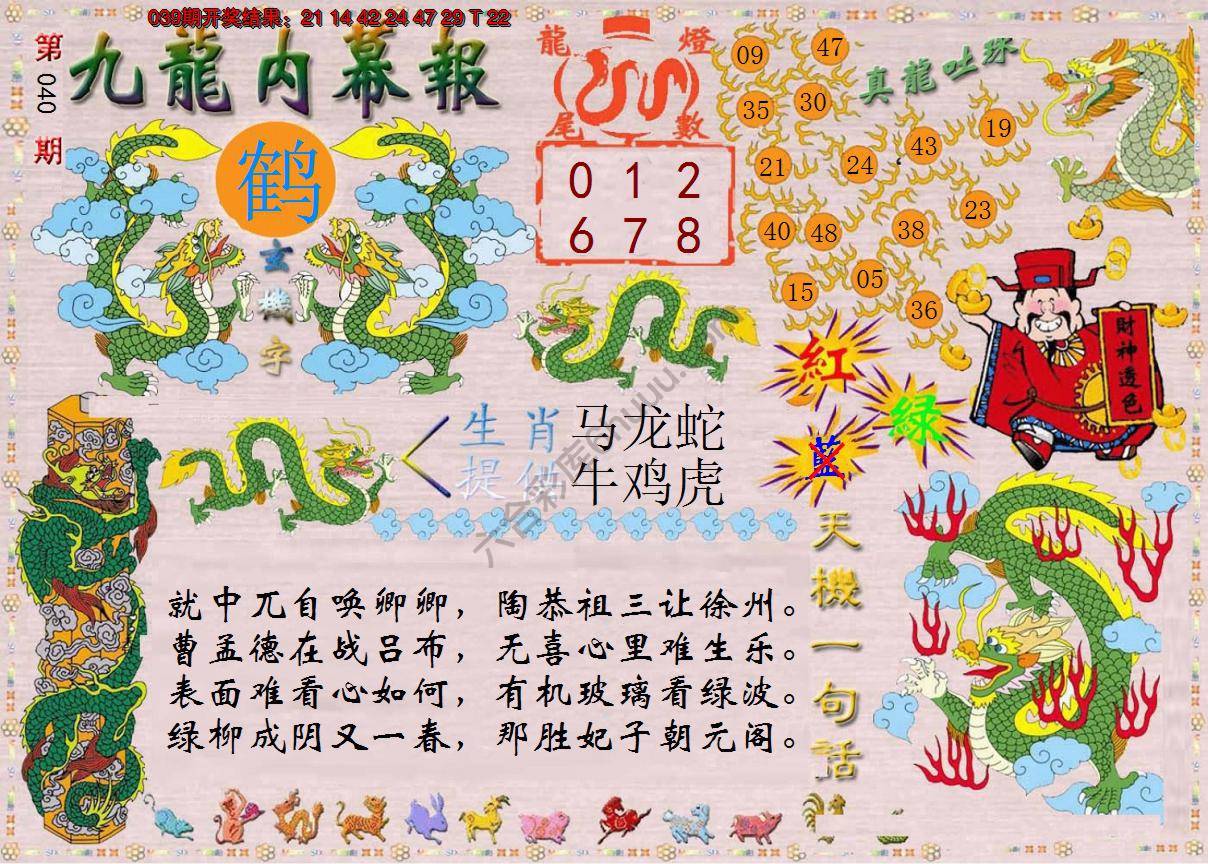 039期开奖结果：21 14 42 24 47 29 T 22
第040期
九龍内幕報
鹤
玄機字
龍燈
尾數
0 1 2
6 7 8
真龍吐珠
09
47
35
30
43
19
21
24
40
48
38
23
15
05
36
財神透色
紅
綠
藍
生肖
提供
马龙蛇
牛鸡虎
天機一句話
就中兀自唤卿卿，陶恭祖三让徐州。
曹孟德在战吕布，无喜心里难生乐。
表面难看心如何，有机玻璃看绿波。
绿柳成阴又一春，那胜妃子朝元阁。